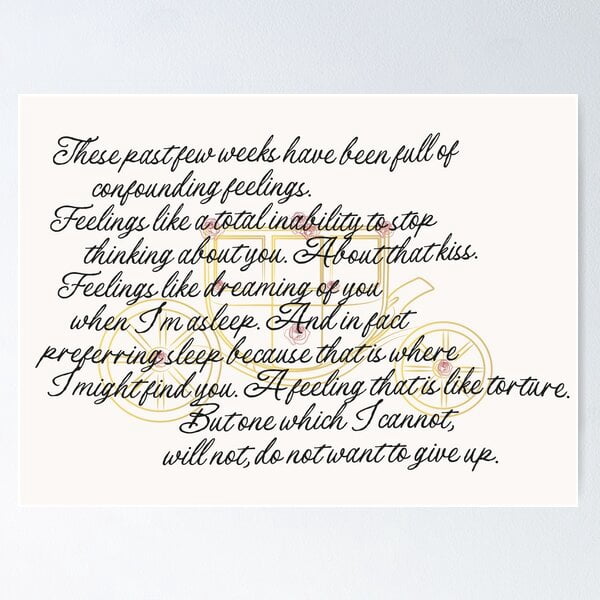 These past few weeks have been full of
confounding feelings.
Feelings like a total inability to stop
thinking about you. About that kiss.
Feelings like dreaming of you
when I'm asleep. And in fact
preferring sleep because that is where
I might find you. A feeling that is like torture.
But one which I cannot,
will not, do not want to give up.